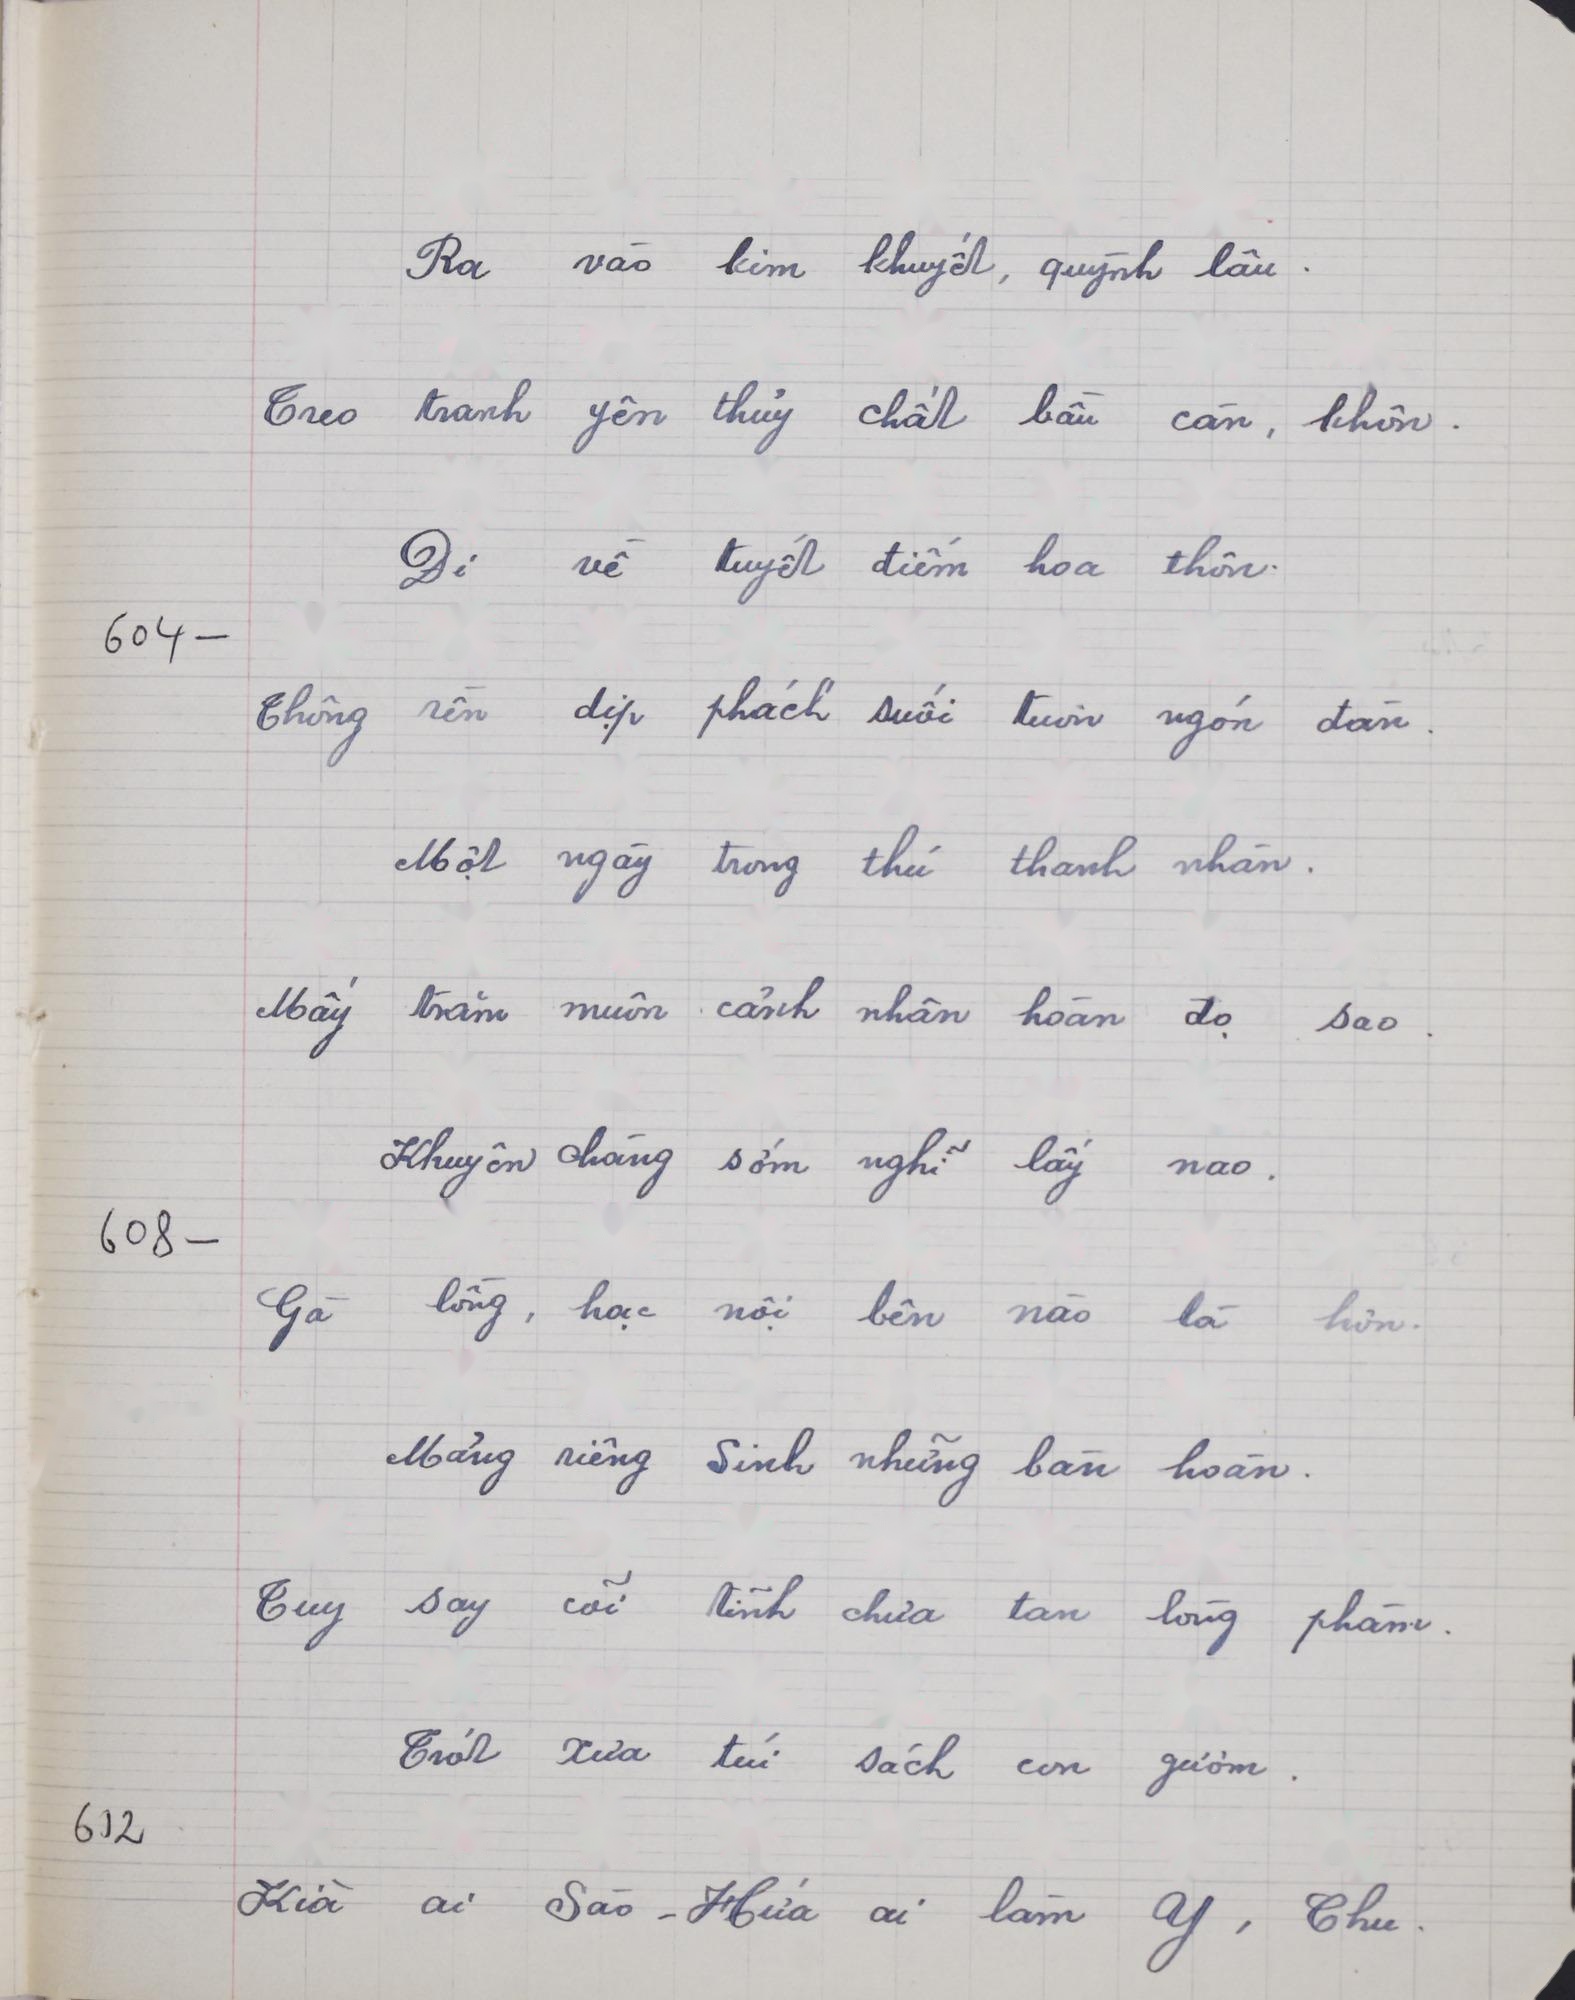 Ra vào kim khuyết, quỳnh lâu.
Treo tranh yên thủy chất bầu càn, khôn.
Đi về tuyết điếm hoa thôn.
604-
Thông rền dịp phách suối tuôn ngón đàn.
Một ngày trong thú thanh nhàn.
Mấy trăm muôn cảnh nhân hoàn đọ sao.
Khuyên chàng sớm nghĩ lấy nao.
608-
Gà lồng, hạc nội bên nào là hơn.
Mảng riêng Sinh những bàn hoàn.
Tuy say cõi tĩnh chửa tan lòng phàm.
Trót xưa túi sách con gươm.
612
Kìa ai Sào-Hứa ai làm Y, Chu.